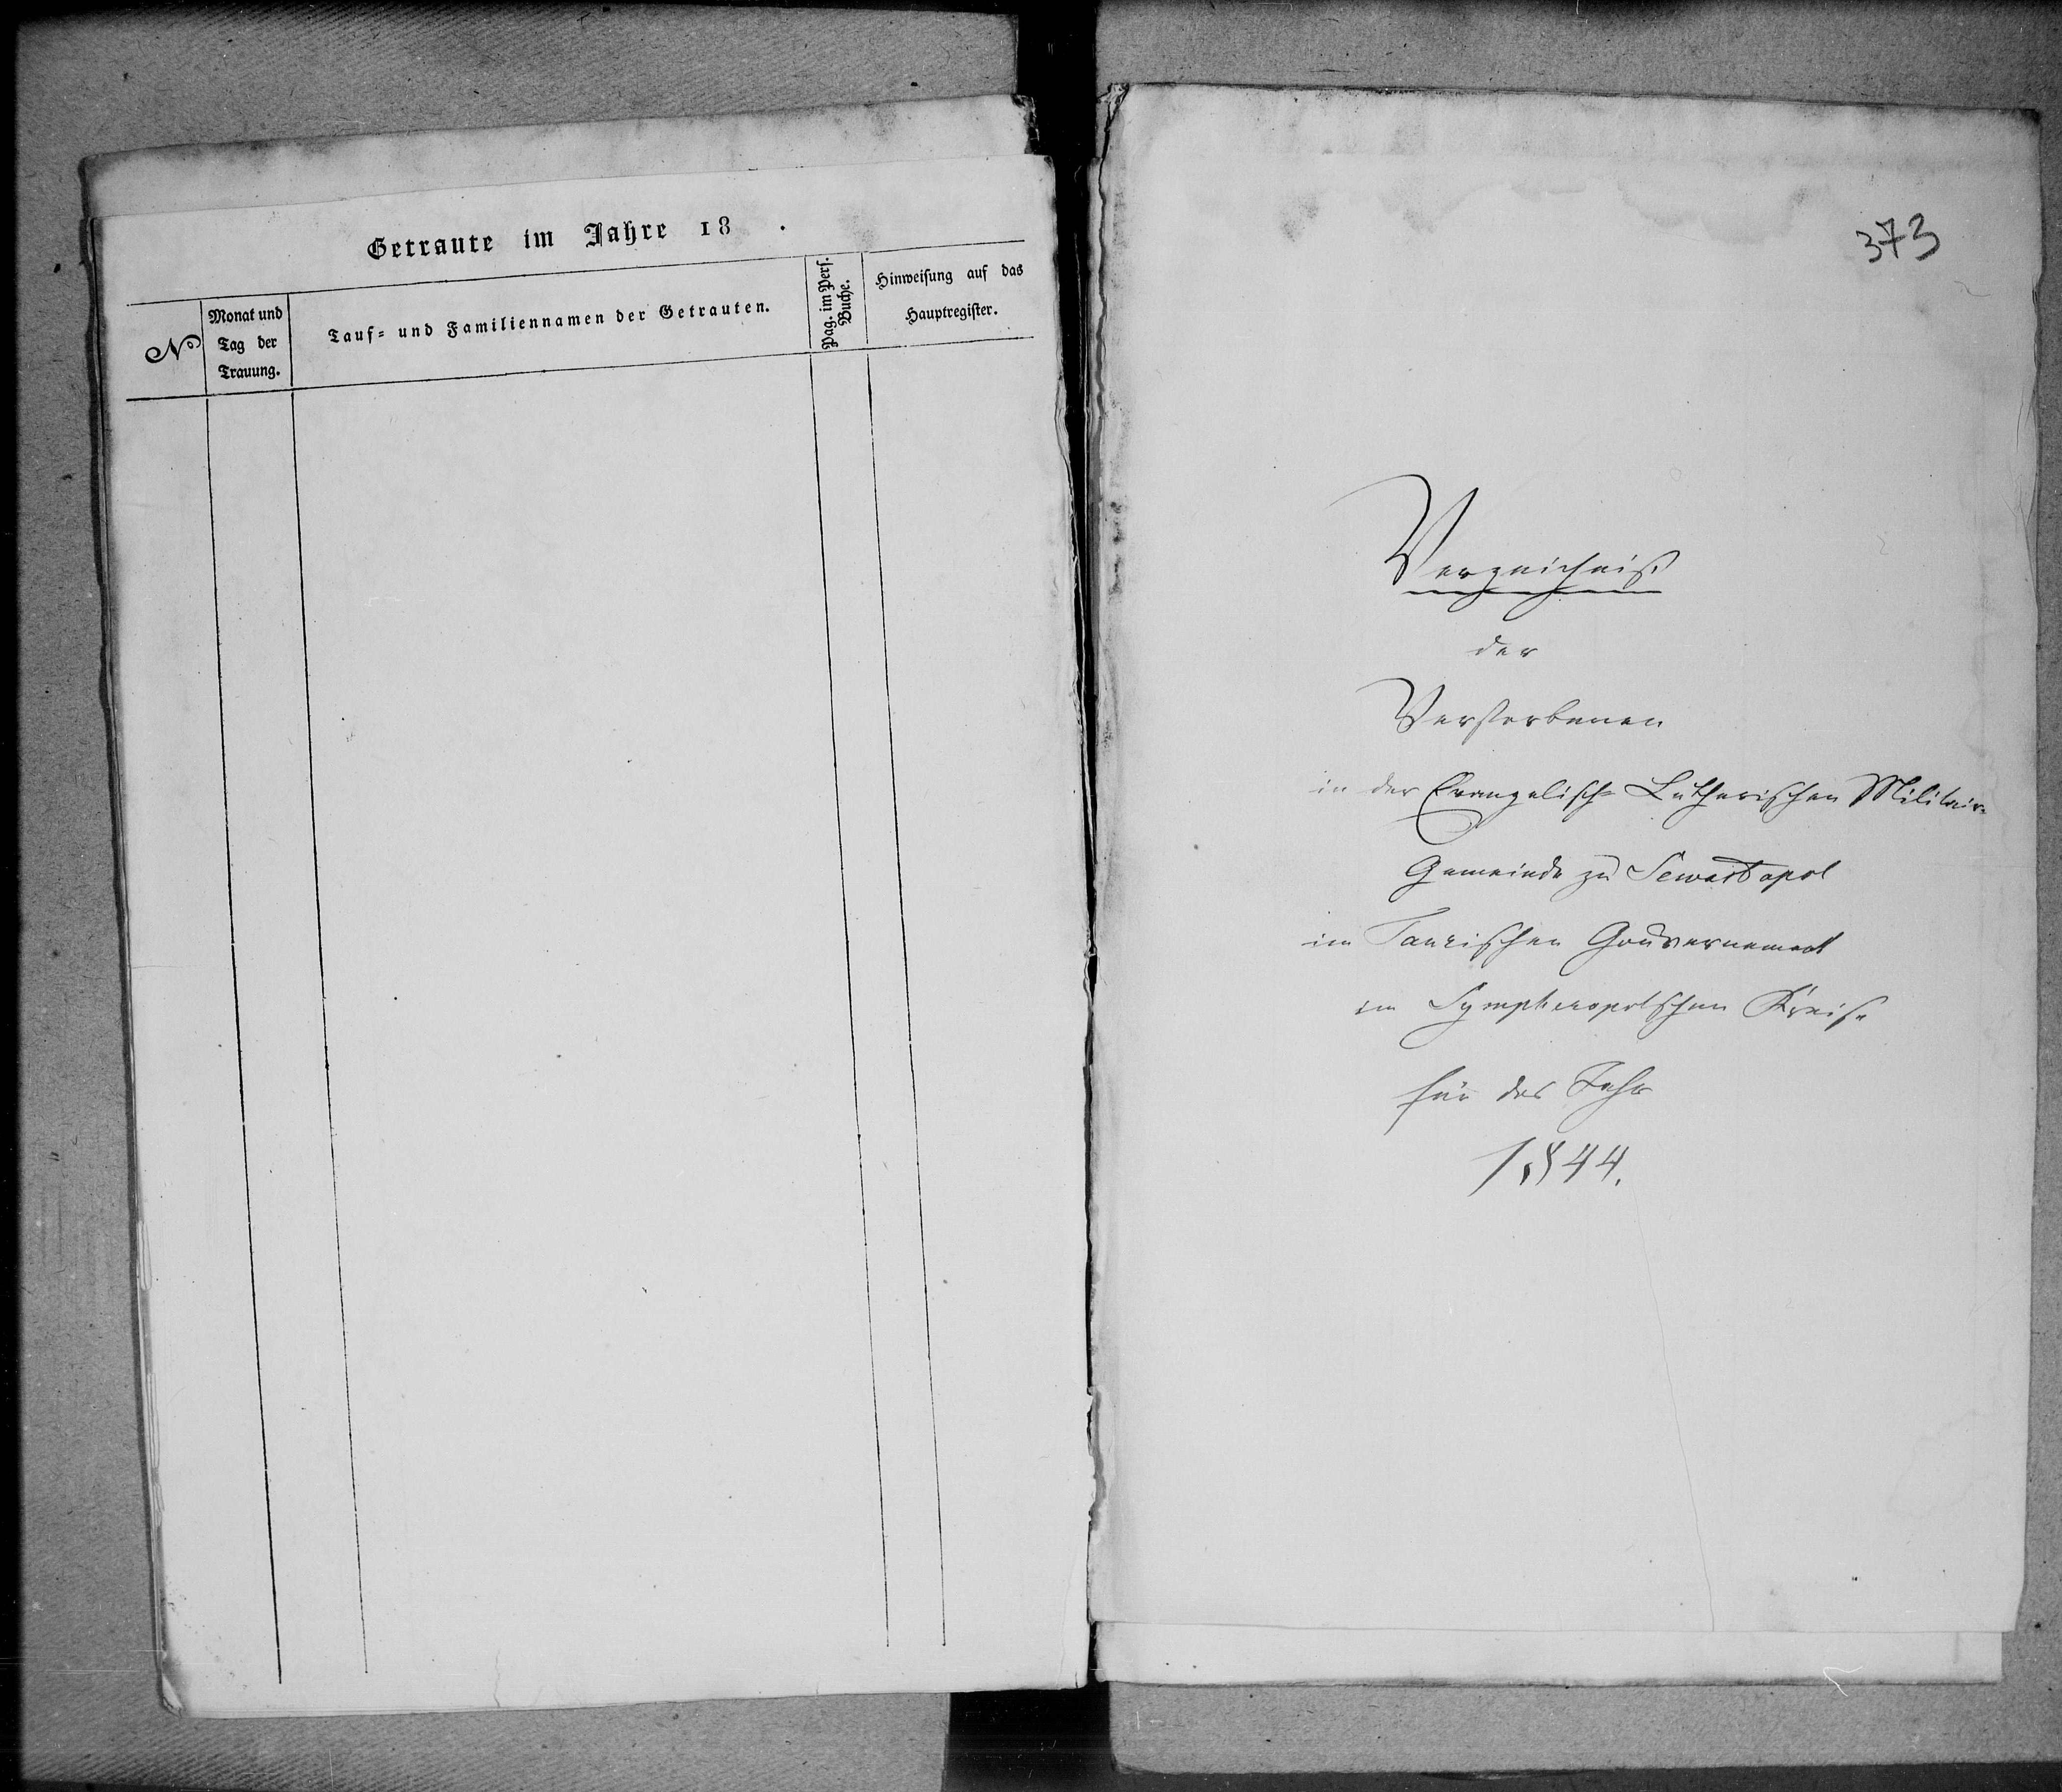 Getraute im Jahre 18 .
№
Monat und
Tag der
Trauung.
Tauf- und Familiennamen der Getrauten.
Pag. im Pers.
Buche.
Hinweisung auf das
Hauptregister.
373
Verzeichniß
der
Verstorbenen
in der Evangelisch-Lutherischen Militair-
Gemeinde zu Sewastopol
im Taurischen Gouvernement
im Sympheropolschen Kreise
für das Jahr
1844.